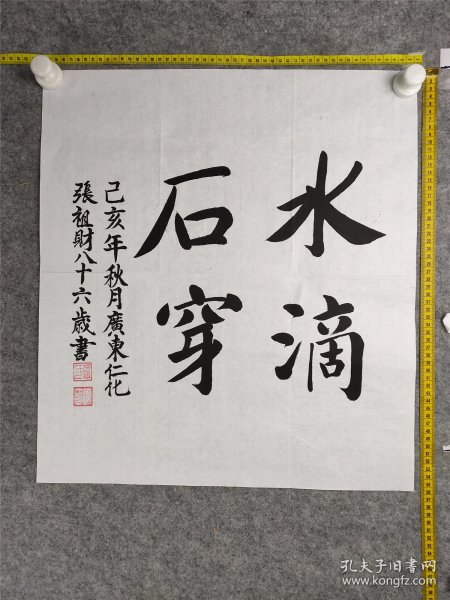 水滴
石穿
己亥年秋月廣東仁化
張祖財八十六歲書
孔夫子旧书网
www.kongfz.com